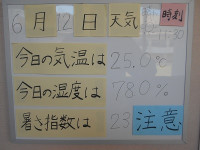 6月12日 天気 時刻
今日の気温は 25.0%
今日の湿度は 78.0%
暑さ指数は 23 注意